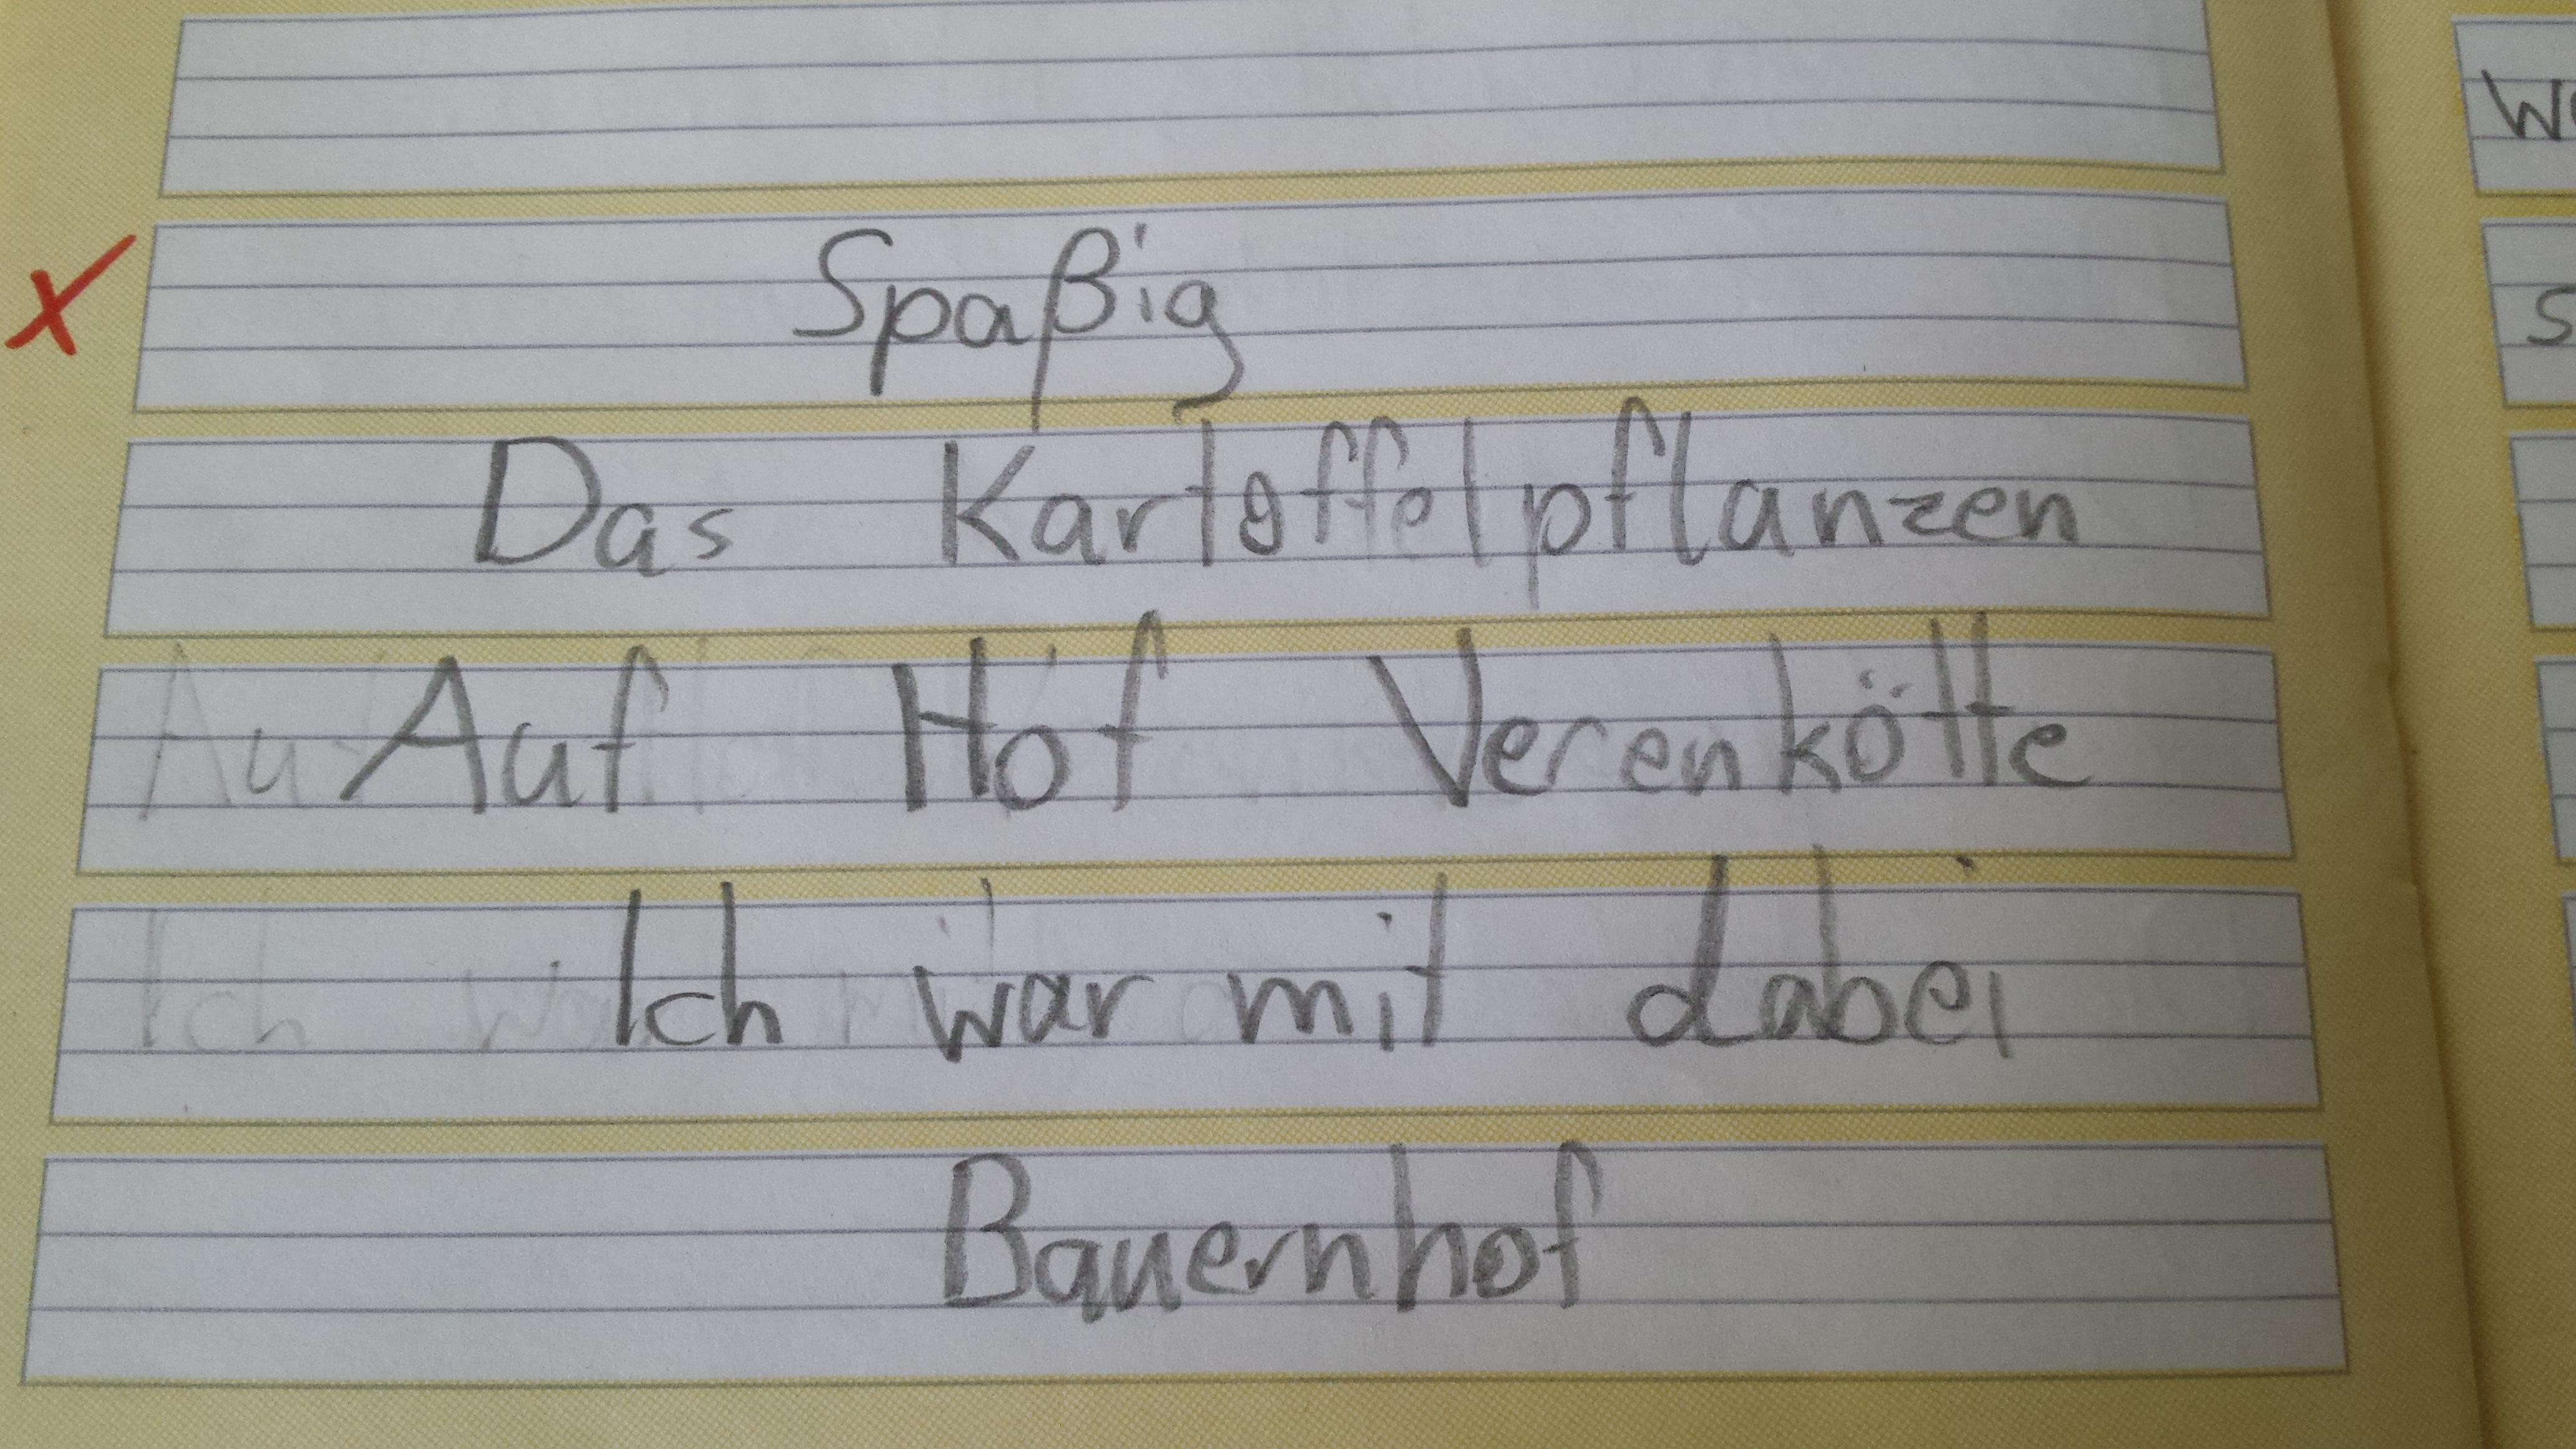 Spaßig
Das Kartoffelpflanzen
Auf Hof Verenkötte
Ich war mit dabei
Bauernhof